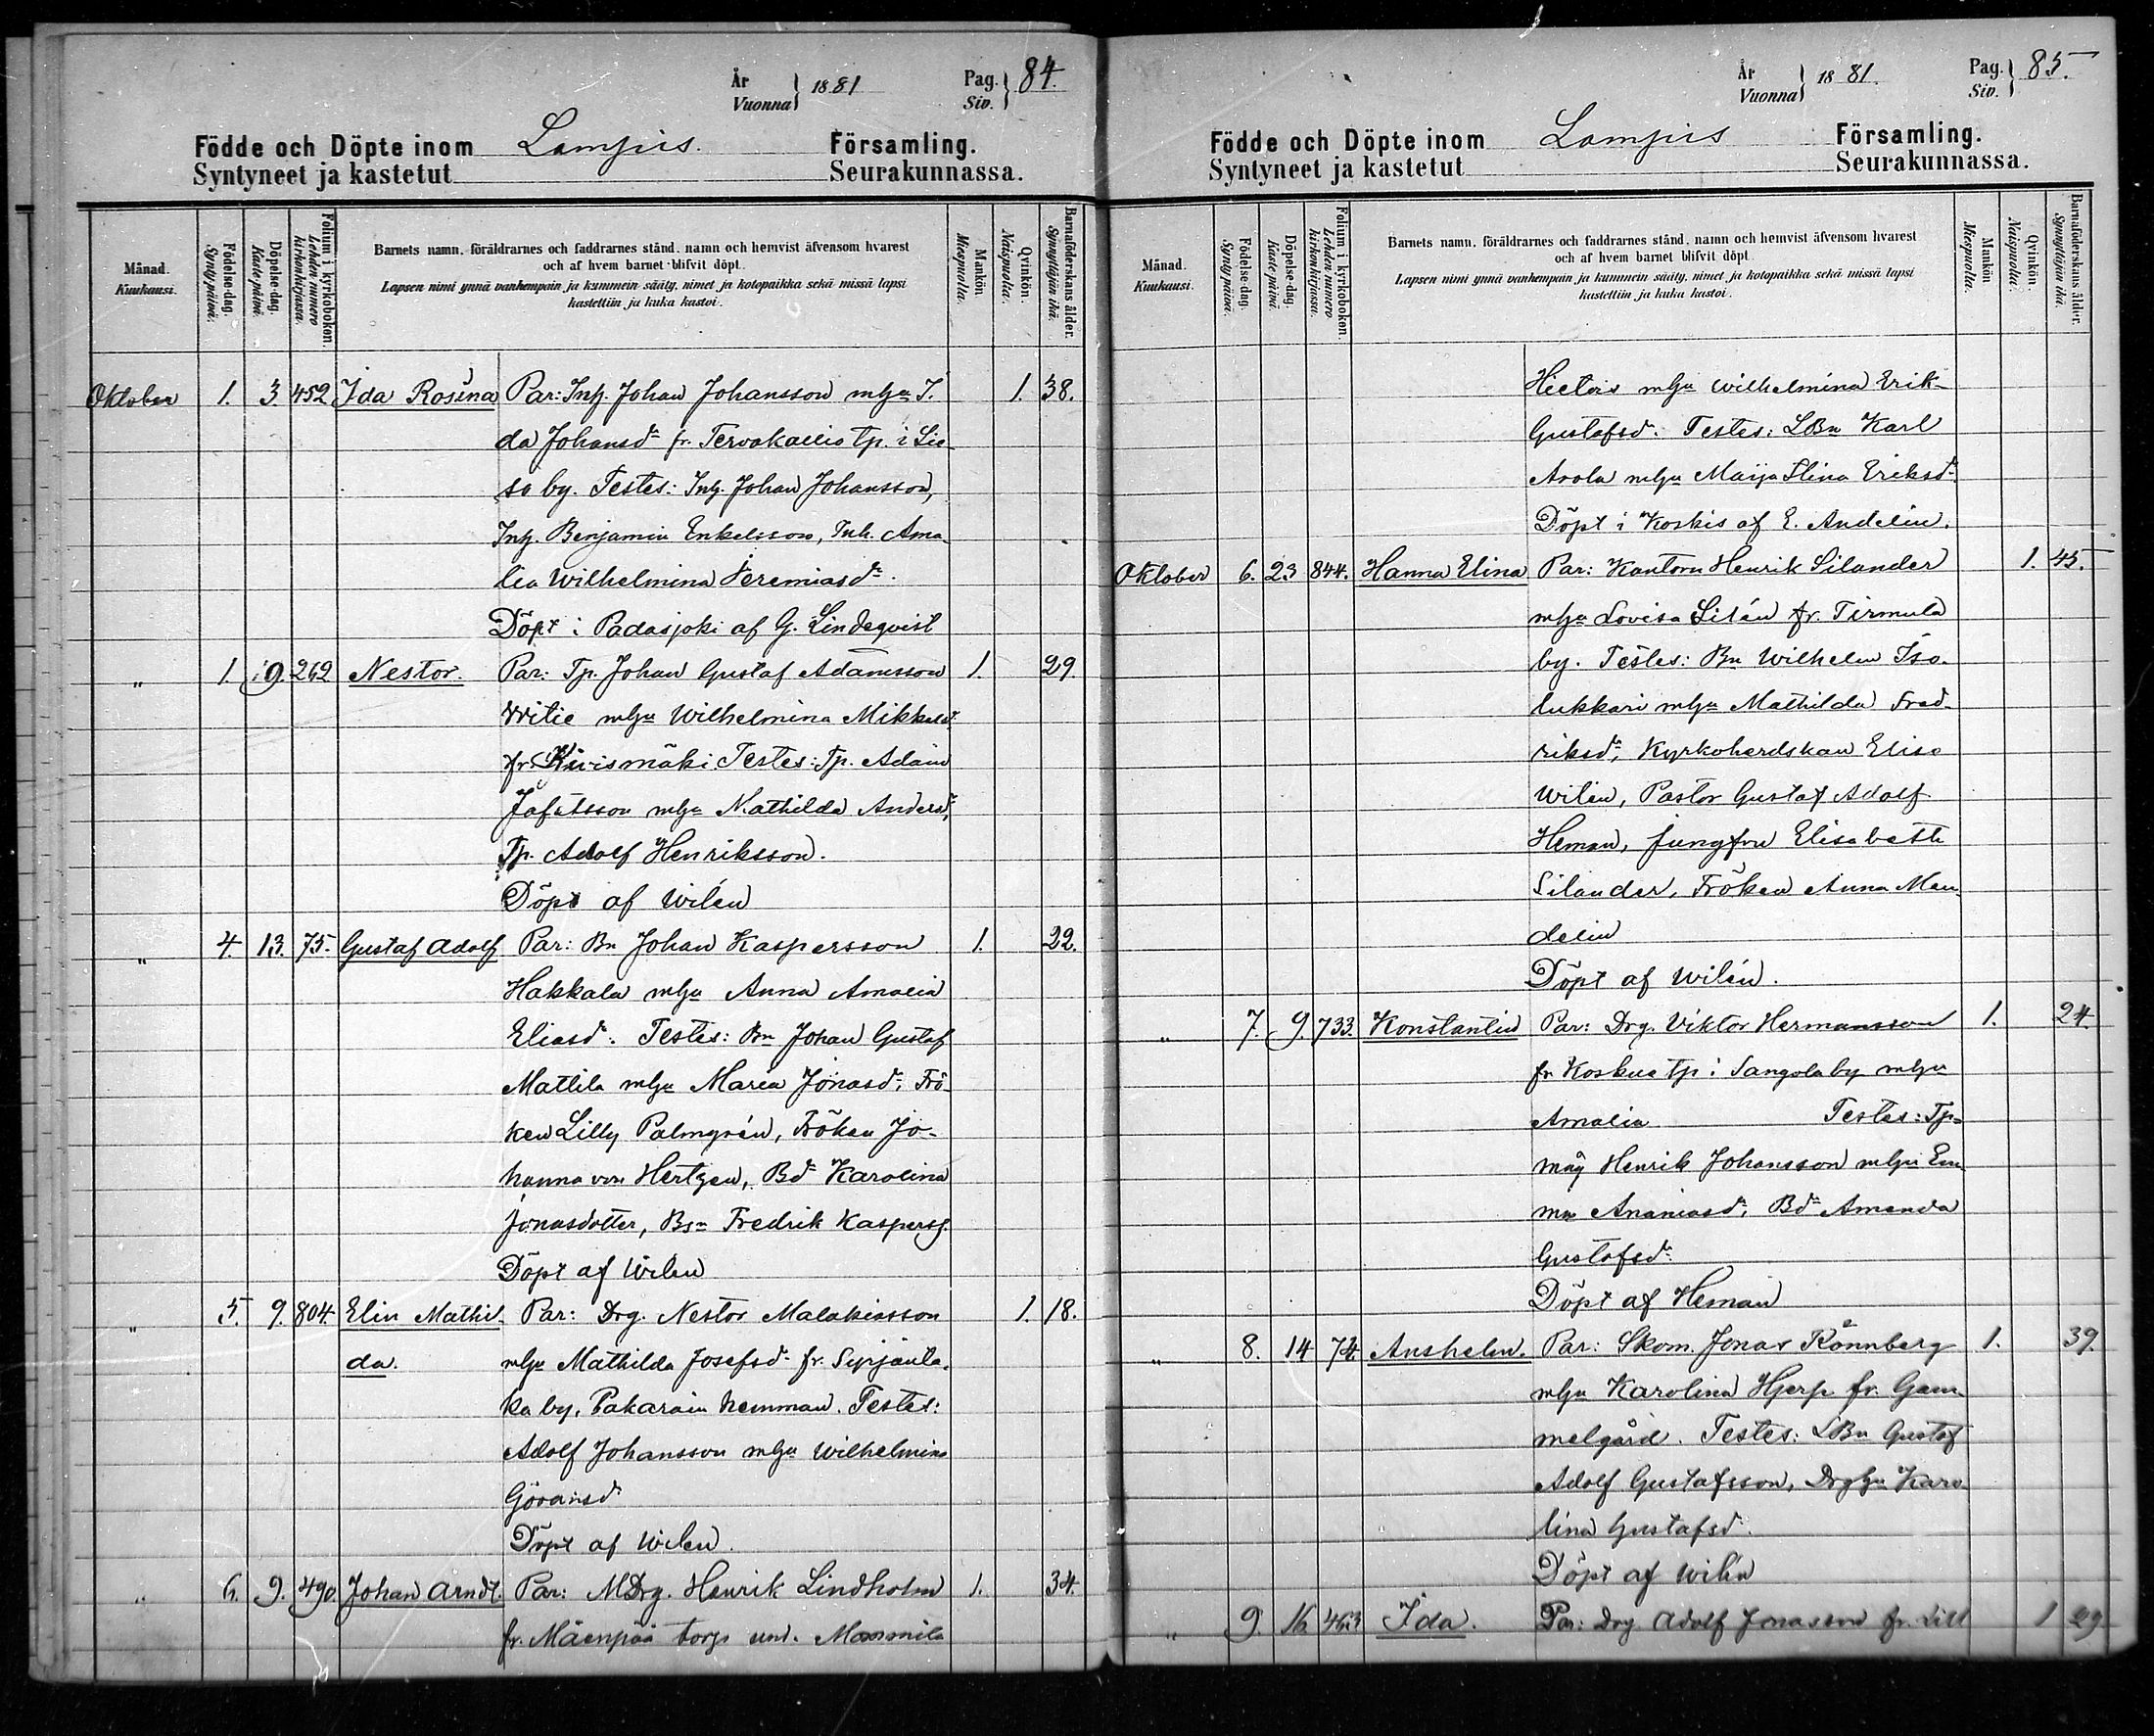 År
Vuonna
1881
Pag.
Siv.
84.
Födde och Döpte inom Lampis. Församling.
Syntyneet ja kastetut Seurakunnassa.
Månad.
Kuukausi.
Födelse-dag.
Syntypäivä.
Döpelse-dag.
Kastepäivä.
Folium i kyrkoboken.
Lehden numero
kirkonkirjassa.
Barnets namn, föräldrarnes och faddrarnes stånd, namn och hemvist äfvensom hvarest
och af hvem barnet blifvit döpt.
Lapsen nimi ynnä vanhempain ja kummein sääty, nimet ja kotopaikka sekä missä lapsi
kastettiin ja kuka kastoi.
Mankön
Miespuolia.
Qvinkön.
Naispuolia.
Barnaföderskans ålder.
Synnyttäjän ikä.
Oktober 1. 3 452 Ida Rosina Par: Inh. Johan Johansson mhu I. 1. 38.
da Johansdr fr. Tervakallio tp. i Lie
so by. Testes: Inh. Johan Johansson,
Inh. Benjamin Enkelsson, Inh. Ama
lia Wilhelmina Jeremiasdr.
Döpt i Padasjoki af G. Lindeqvist
" 1. 9. 262 Nestor. Par: Tp. Johan Gustaf Adamsson 1. 29.
mhu Wilhelmina Mikkelsdr
fr. Kivismäki Testes: Tp. Adam
Jafetsson mhu Mathilda Andersdr,
Tp. Adolf Henriksson.
Döpt af Wilén
" 4. 13. 75. Gustaf Adolf Par: Bn Johan Kaspersson 1. 22.
Hakkala mhu Anna Amalia
Eliasdr. Testes: Bn Johan Gustaf
Mattila mhu Maria Jonasdr, Frö
ken Lilly Palmgrén, Fröken Jo-
hanna von Hertzen, Bdr Karolina
Jonasdotter, Bsn Fredrik Kaspers.
Döpt af Wilen
" 5. 9. 804. Elin Mathil- Par: Drg. Nestor Malakiasson 1. 18.
da. mhu Mathilda Josefsdr fr. Syrjänta
ka by, Pakarain hemman. Testes:
Adolf Johansson mhu Wilhelmina
Göransdr
Döpt af Wilen.
" 6. 9. 490. Johan Arndt. Par: MDrg. Henrik Lindholm 1. 34.
fr. Mäenpää torp und. Mommila
År
Vuonna
1881.
Pag.
Siv.
85.
Födde och Döpte inom Lampis Församling.
Syntyneet ja kastetut Seurakunnassa.
Månad.
Kuukausi.
Födelse-dag.
Syntypäivä.
Döpelse-dag.
Kastepäivä.
Folium i kyrkoboken.
Lehden numero
kirkonkirjassa.
Barnets namn, föräldrarnes och faddrarnes stånd, namn och hemvist äfvensom hvarest
och af hvem barnet blifvit döpt.
Lapsen nimi ynnä vanhempain ja kummein sääty, nimet ja kotopaikka sekä missä lapsi
kastettiin ja kuka kastoi.
Mankön
Miespuolia.
Qvinkön.
Naispuolia.
Barnaföderskans ålder.
Synnyttäjän ikä.
mhu Wilhelmina Erik-
Gustafsdr. Testes: LBn Karl
Arola mhu Maija Stina Eriksdr.
Döpt i Koskis af E. Andelin.
Oktober 6. 23 844. Hanna Elina Par: Kantorn Henrik Silander 1. 45.
mhu Lovisa Silén fr. Tirmula
by. Testes: Bn Wilhelm Iso-
lukkari mhu Mathilda Fred-
riksdr, Kyrkoherdskan Elise
Wilen, Pastor Gustaf Adolf
Heman, jungfru Elisabeth
Silander, Fröken Anna Man
delin
Döpt af Wilén.
" 7. 9. 733. Konstantin Par: Drg. Viktor Hermansson 1. 24.
fr. Koskua tp. i Sangola by mhu
Amalia Testes: Tp=
måg Henrik Johansson mhu Em
ma Ananiasdr, Bdr Amanda
Gustafsdr
Döpt af Heman
" 8. 14 74. Anshelm. Par: Skom. Jonas Rönnberg 1. 39.
mhu Karolina Hjerp fr. Gam
melgård. Testes: LBn Gustaf
Adolf Gustafsson, Drghu Karo
lina Gustafsdr.
Döpt af Wilén
" 9. 16 463 Ida. Par: Drg. Adolf Jonasson fr. Lill 1 29.